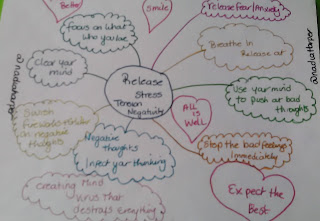 Better
Smile
Release Fear/Anxiety
Focus on What
Who you love
Breathe In
Release at
Clear your
mind
Release
Stress
Tension
Negativity
Use your mind
to push at bad
thoughts
All
is
Well
Swish
fireworks
on negative
thoughts
Negative
thoughts
Infect your thinking
Stop the bad feelings
Immediately
Creating Mind
Virus That
destroys Everything
Expect the
Best